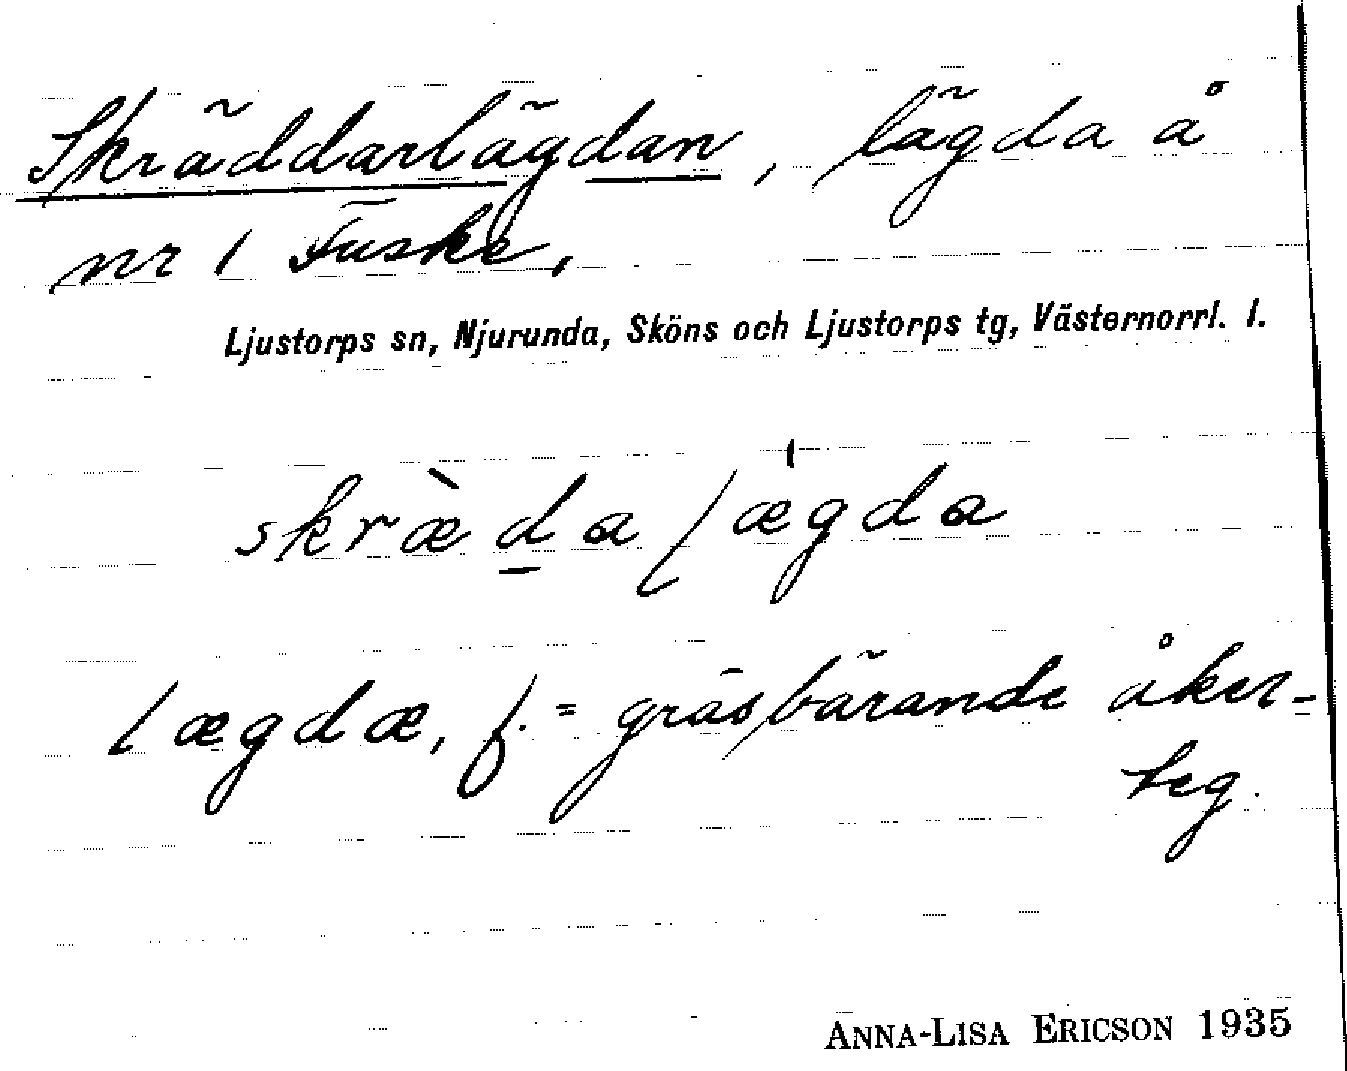 Skräddarlägdan, lägda å
nr 1 Fuske,
Ljustorps sn, Njurunda, Sköns och Ljustorps tg, Västernorrl. l.
skræ̀da lǽgda
lægdæ, f. = gräsbärande åker-
teg.
ANNA-LISA ERICSON 1935